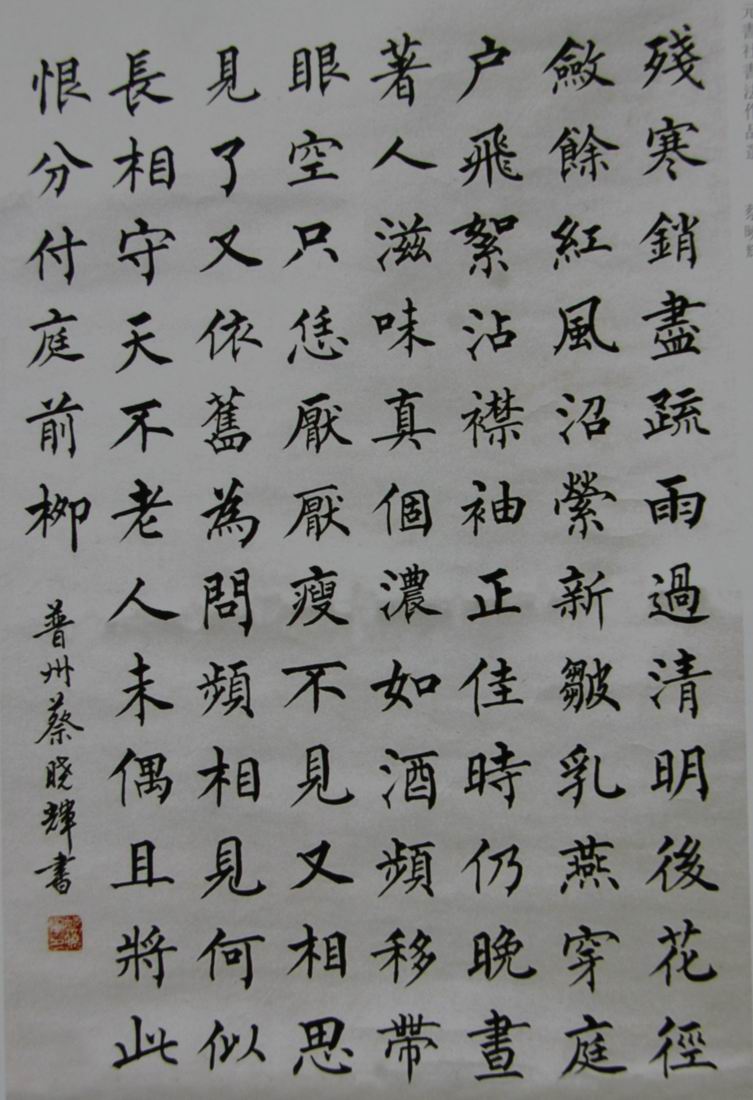 殘寒銷盡疏雨過清明後花徑
斂餘紅風沼縈新皺乳燕穿庭
户飛絮沾襟袖正佳時仍晚晝
著人滋味真個濃如酒頻移帶
眼空只恁厭厭瘦不見又相思
見了又依舊為問頻相見何似
長相守天不老人未偶且將此
恨分付庭前柳
普州蔡晓輝書